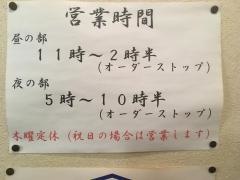 営業時間
昼の部
11時～2時半
(オーダーストップ)
夜の部
5時～10時半
(オーダーストップ)
木曜定休(祝日の場合は営業します)